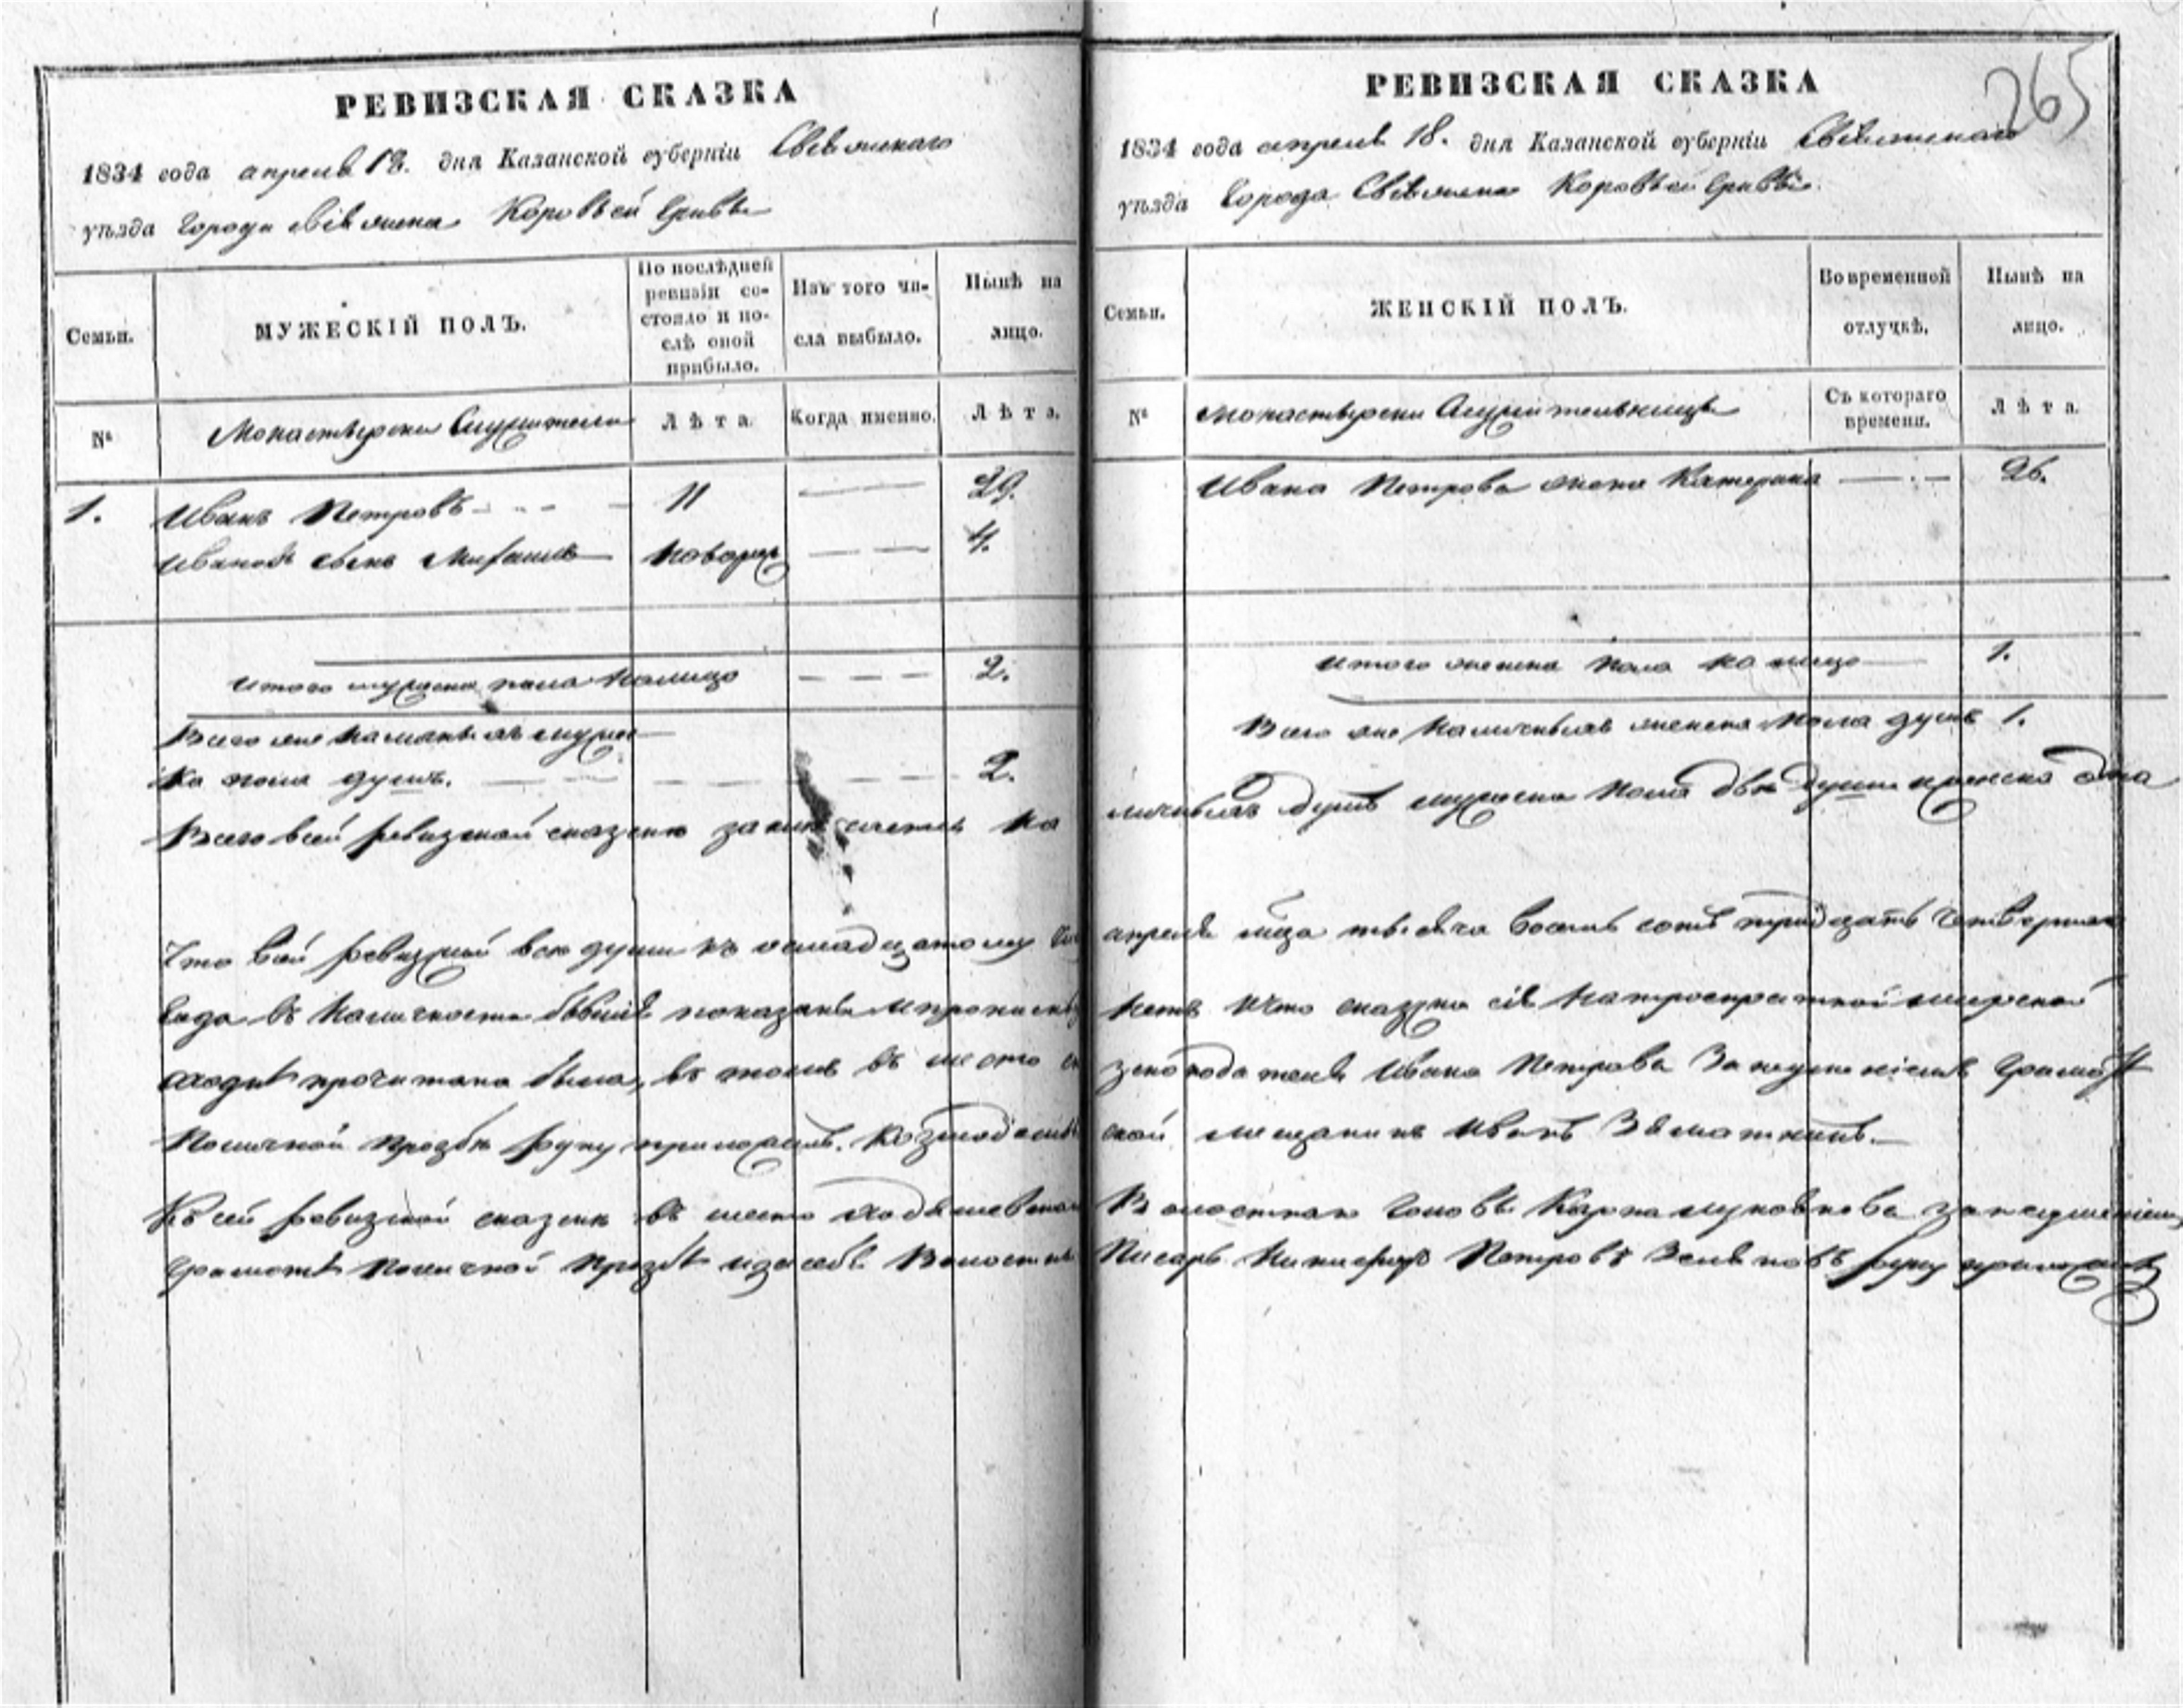 РЕВИЗСКАЯ СКАЗКА
1834 года апреля 18. дня Казанской губерніи Свіяжскаго
уѣзда города Свіяжска Коровьей Гривы
Семьи.
МУЖЕСКІЙ ПОЛЪ.
По послѣдней
ревизіи со-
стояло и по-
слѣ оной
прибыло.
Изъ того чи-
сла выбыло.
Нынѣ на
лицо.
№
Монастырски Служители
Лѣта.
Когда именно.
Лѣта.
1. Иванъ Петровъ 11 29.
Ивановъ сынъ новорож 4.
Итого мужеска пола на лицо 2.
Всего же наличныхъ мужес
ка пола душъ. 2.
Всего в сей ревизской сказке заключается на
Что в сей ревизской все души къ осмнадцатому
года въ наличности бывшія показаны и прописны
сходе прочитана была, въ томъ въ место
по личной прозбе руку приложилъ.
Къ сей ревизской сказке въ место
грамоте по личной прозбе и за себя Волостной
265
РЕВИЗСКАЯ СКАЗКА
1834 года апреля 18. дня Казанской губерніи Свіяжскаго
уѣзда города Свіяжска Коровьей Гривы.
Семьи.
ЖЕНСКІЙ ПОЛЪ.
Во временной
отлучкѣ.
Нынѣ на
лицо.
№
Монастырски Служительницы
Съ котораго
времени.
Лѣта.
Ивана Петрова жена Катерина 26.
Итого женска пола на лицо 1.
Всего же наличныхъ женска пола душъ 1.
личныхъ душъ мужеска пола две души и женска одна
апреля мца тысяча восемь сотъ тридцать четвертаго
нетъ и что сказка сія мирской
Ивана Петрова за неумениемъ грамоте
ской мещанинъ Иванъ
Волостнаго Головы за неумениемъ
Писарь Никифоръ Петровъ руку приложилъ